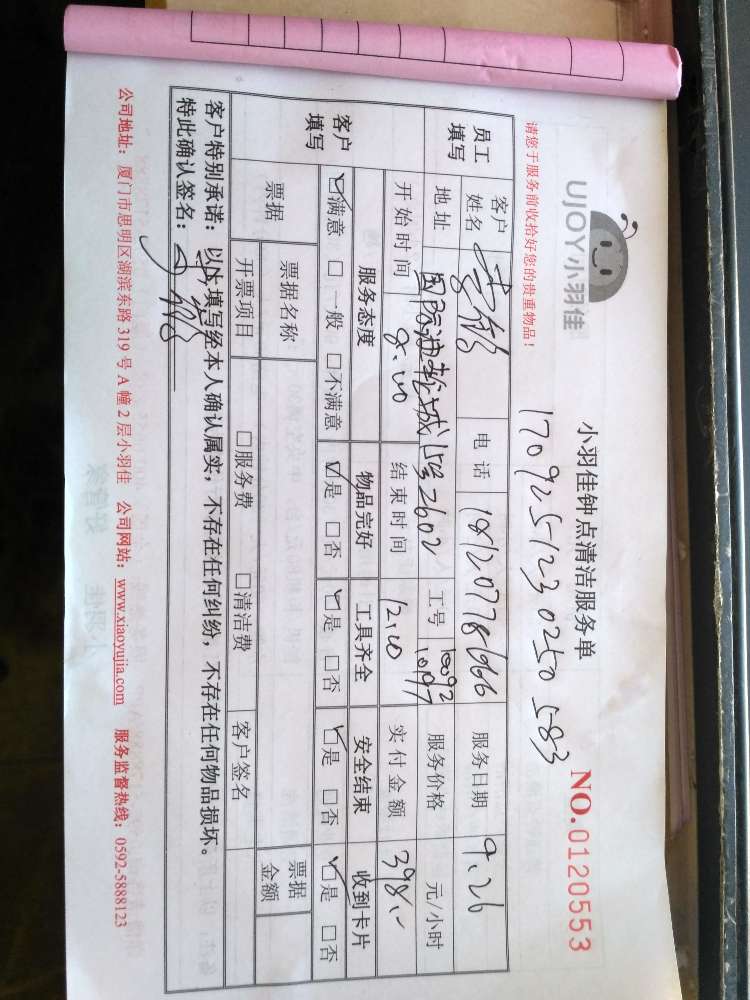 UJOY小羽佳
小羽佳钟点清洁服务单
NO.0120553
1709251230250583
请您于服务前收拾好您的贵重物品！
员工填写 客户姓名 电话 18120778666 服务日期 9.26
地址 国际游轮城15号2602 工号 10092 10097 服务价格 元/小时
开始时间 8:00 结束时间 12:00 实付金额 398.-
客户填写 服务态度 物品完好 工具齐全 安全结束 收到卡片
☑满意 □一般 □不满意 ☑是 □否 ☑是 □否 ☑是 □否 ☑是 □否
票据 票据名称： 票据金额
开票项目 □服务费 □清洁费 客户签名
客户特别承诺：以上填写经本人确认属实，不存在任何纠纷，不存在任何物品损坏。
特此确认签名：
公司地址：厦门市思明区湖滨东路319号A幢2层小羽佳 公司网站：www.xiaoyujia.com 服务监督热线：0592-5888123